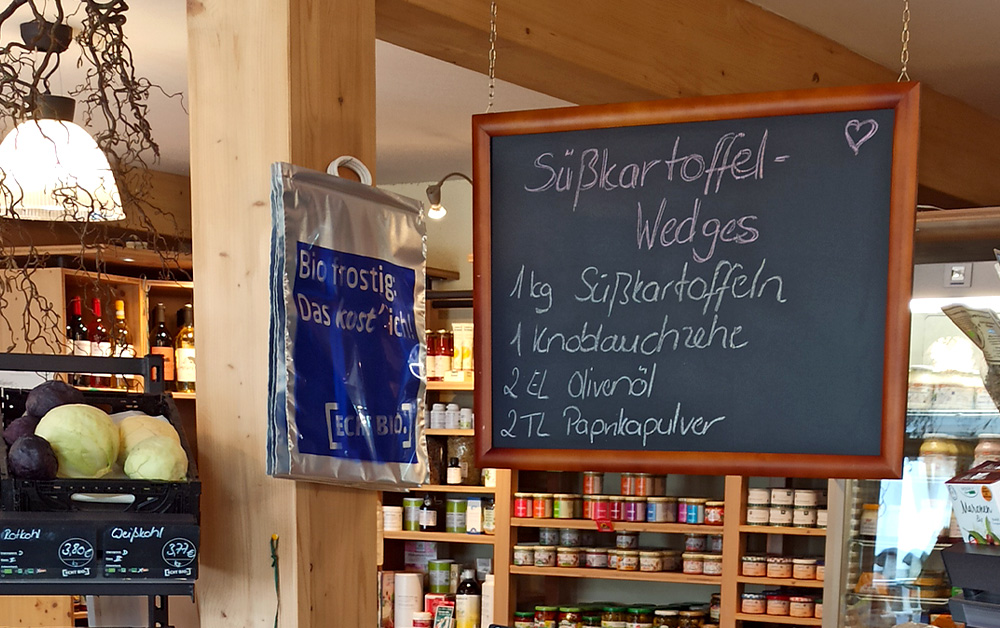 Süßkartoffel-
Wedges
1kg Süßkartoffeln
1 Knoblauchzehe
2 EL Olivenöl
2TL Paprikapulver
Bio frostig:
Das kost' ich!
[ECHT BIO.]
Rotkohl
3,80€
[ECHT BIO.]
Weißkohl
3,77€
[ECHT BIO.]